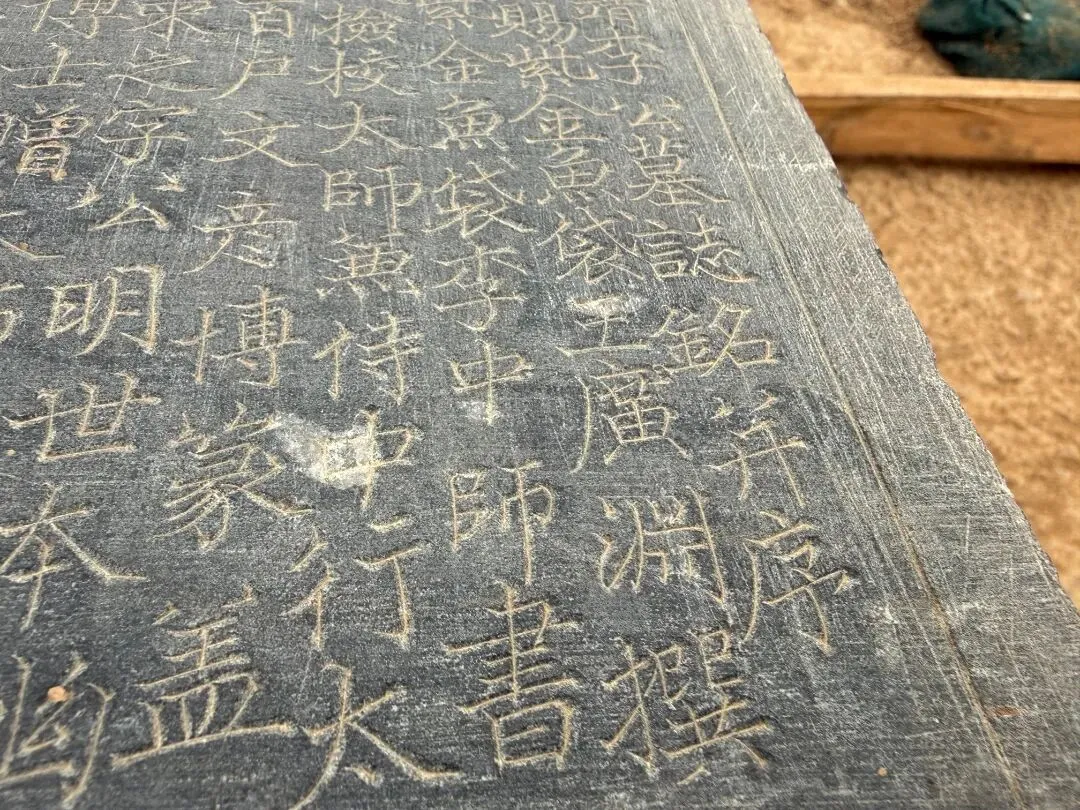 李公墓誌銘并序
賜紫金魚袋王廣淵撰
紫金魚袋李中師書
撿校太師兼侍中行太
百戶文彥博篆蓋
來之字公明世本幽
士贈